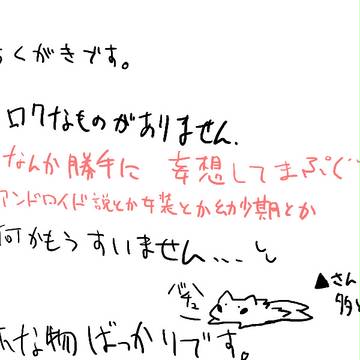 くがきです。
ロクなものがありません.
なんか勝手に 妄想してまぷぐ
アンドロイド説とか女装とか幼少期とか
何かもうすいません...
バチュ
▲さん
な物ばっかりです。